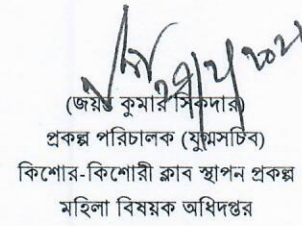 (জয়ন্ত কুমার সিকদার)
প্রকল্প পরিচালক (যুগ্মসচিব)
কিশোর-কিশোরী ক্লাব স্থাপন প্রকল্প
মহিলা বিষয়ক অধিদপ্তর